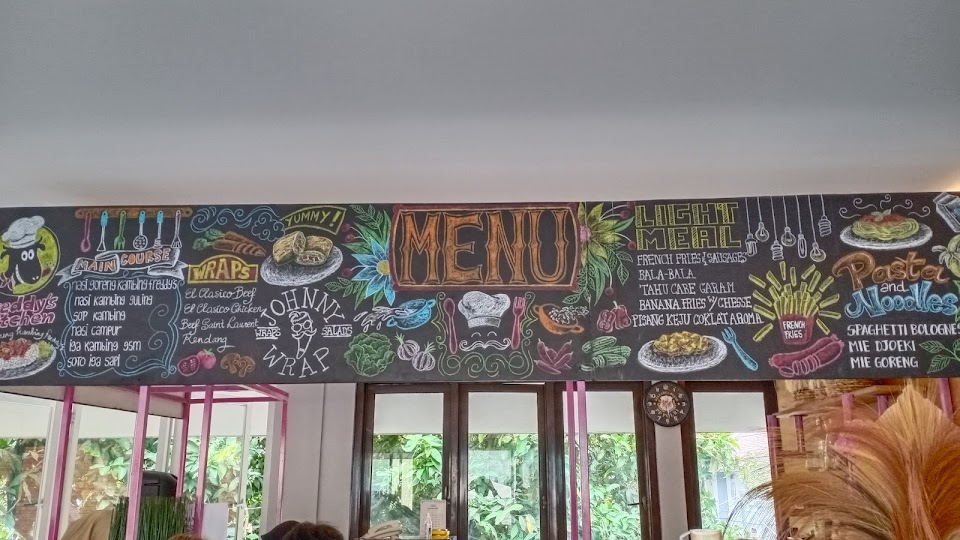 MENU
MAIN COURSE
nasi goreng kambing freddys
nasi kambing guling
sop kambing
nasi campur
iga kambing gsm
soto iga sapi
WRAPs
YUMMY!
el Clasico Beef
el Clasico Chicken
Beef Saint Laurent
Rendang
JOHNNY
WRAPS SALADS
WRAP
LIGHT
MEAL
FRENCH FRIES & SAUSAGES
BALA-BALA
TAHU CABE GARAM
BANANA FRIES W/ CHEESE
PISANG KEJU COKLAT AROMA
FRENCH
FRIES
Pasta
and
Noodles
SPAGHETTI BOLOGNES
MIE DJOEKI
MIE GORENG